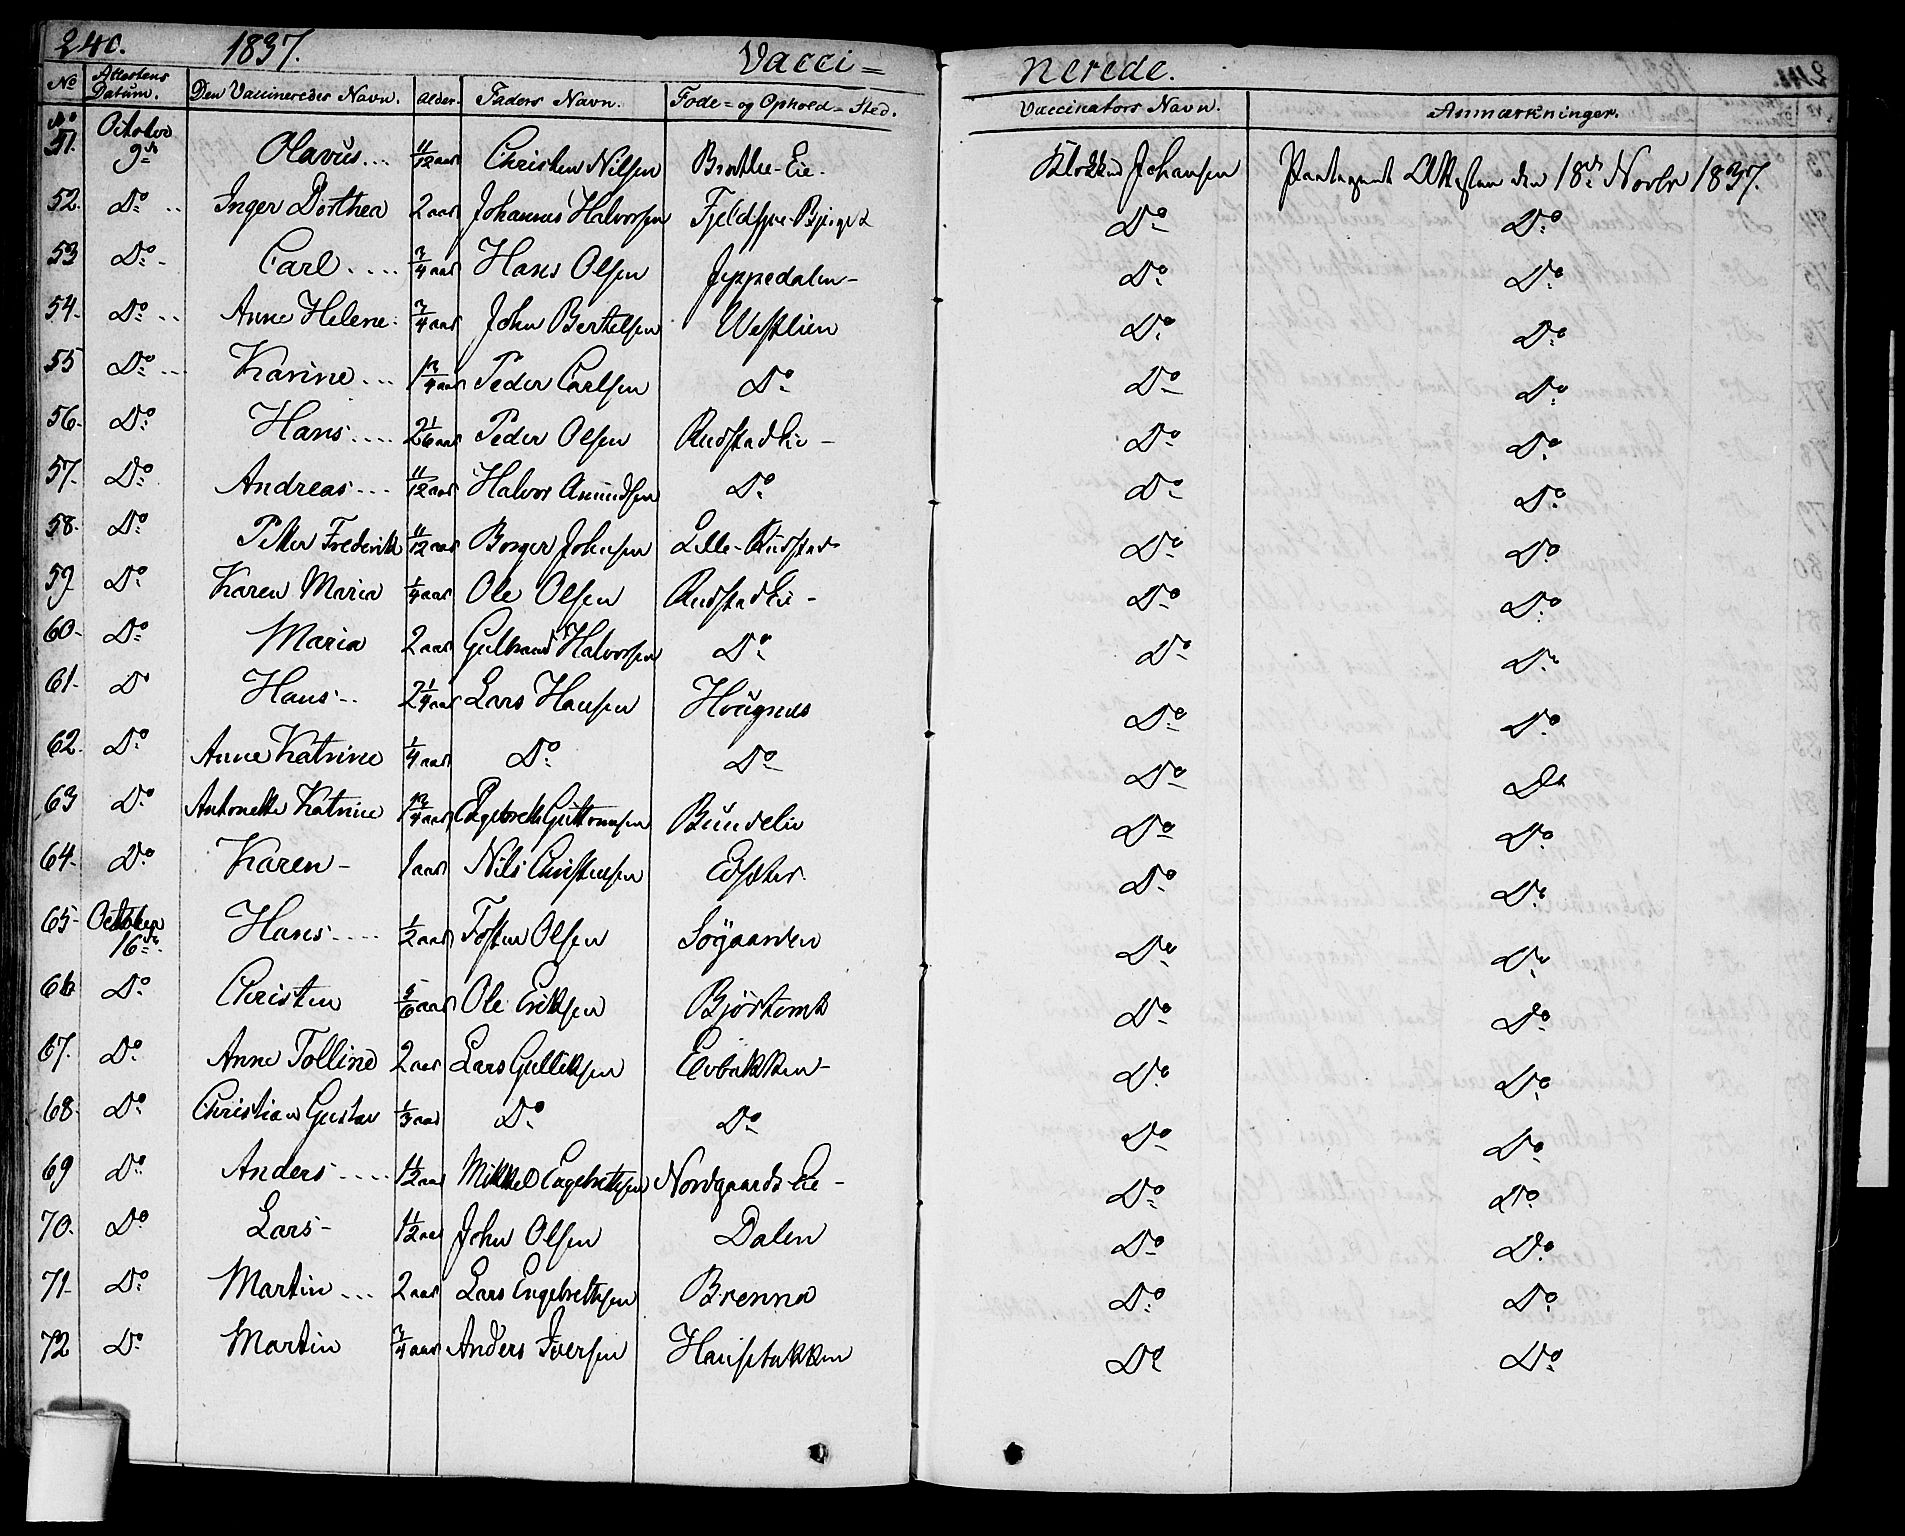 240. 1837. Vacci= nerede.
No Attestens Datum. Den Vaccineredes Navn. Alder. Faders Navn. Føde= og Ophold=Sted. Vaccinators Navn. Anmærkninger.
No 51. October 9de Olavus... 11/12 aar Christen Nilsen Brathe-Eie. Klokker Johansen Paategnet Attesten den 18de Novbr 1837.
52. Do .. Inger Dorthea 2 aar Johannes Halvorsen Do Do
53 Do - Carl .... 3/4 aar Hans Olsen Jeppedalen- Do Do
54- Do .. Anne Helene. 3/4 aar John Berthelsen Westlien Do Do
55 Do ... Karine ... 1 3/4 aar Peder Carlsen Do Do Do
56- Do Hans .... 2 1/6 aar Peder Olsen Rudstad Eie - Do Do
57- Do Andreas ... 11/12 aar Halvor Amundsen Do Do Do
58- Do Petter Frederik 11/12 aar Borger Johnsen Lille-Rudstad Do Do
59 Do Karen Maria 1/4 aar Ole Olsen Rudstad Eie - Do Do
60- Do Maria 2 aar Gulbrand Halvorsen Do Do Do
61- Do Hans -- 2 1/4 aar Lars Hansen Hougnes Do Do
62. Do Anne Katrine 1/4 aar Do Do Do Do
63 Do Antonette Katrine 1 3/4 aar Engebreth Guttormsen Bundelie Do Do
64- Do Karen - 1 aar Nils Christensen Edsæter. Do Do
65- October 16de Hans .... 1/2 aar Tosten Olsen Søgaarden Do Do
66 Do Christen 5/6 aar Ole Eriksen Bjørtomt Do Do
67. Do Anne Tolline 2 aar Lars Gulliksen Evbakken- Do Do
68- Do Christian Gustav 1/3 aar Do Do Do Do
69 Do Anders .... 1 1/2 aar Mikkel Engebretsen Nordgaards Eie - Do Do
70. Do Lars - 1 1/2 aar John Olsen Dalen Do Do
71- Do Martin ... 2 aar Lars Engebrethsen Brenna Do Do
72 Do Martin 3/4 aar Anders Iversen Hansebakken Do Do